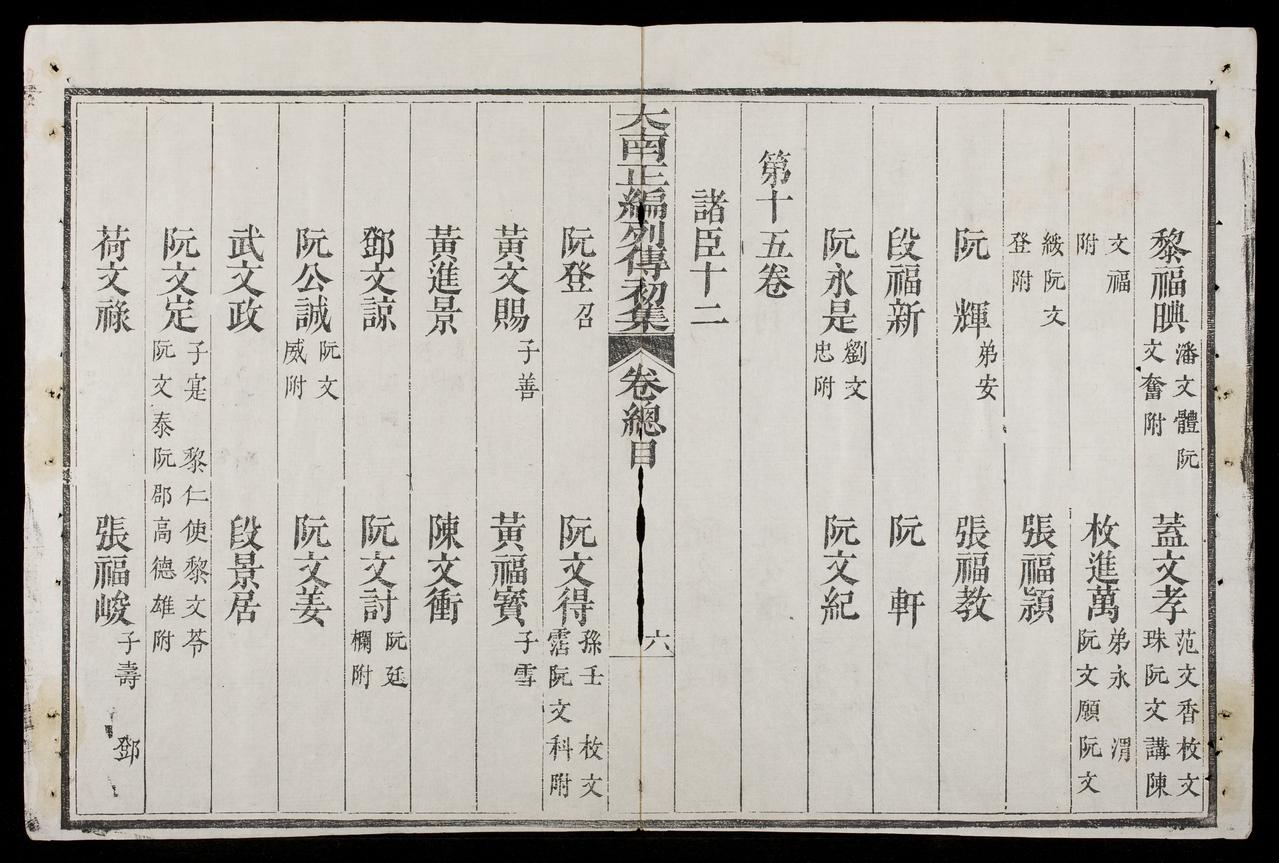 黎福晪 潘文體阮文奮附 蓋文孝 范文香枚文珠阮文講陳
文福附 枚進萬 弟永 渭阮文願阮文
綏阮文登附 張福潁
阮輝 弟安 張福教
段福新 阮軒
阮永是 劉文忠附 阮文紀
第十五卷
諸臣十二
大南正編列傳初集 卷總目 六
阮登召 阮文得 孫壬 枚文霑阮文科附
黃文賜 子善 黃福寶 子雪
黃進景 陳文衝
鄧文諒 阮文討 阮廷欄附
阮公誠 阮文威附 阮文姜
武文政 段景居
阮文定 子寔 黎仁使黎文苓阮文泰阮郡高德雄附
荷文祿 張福峻 子壽 鄧